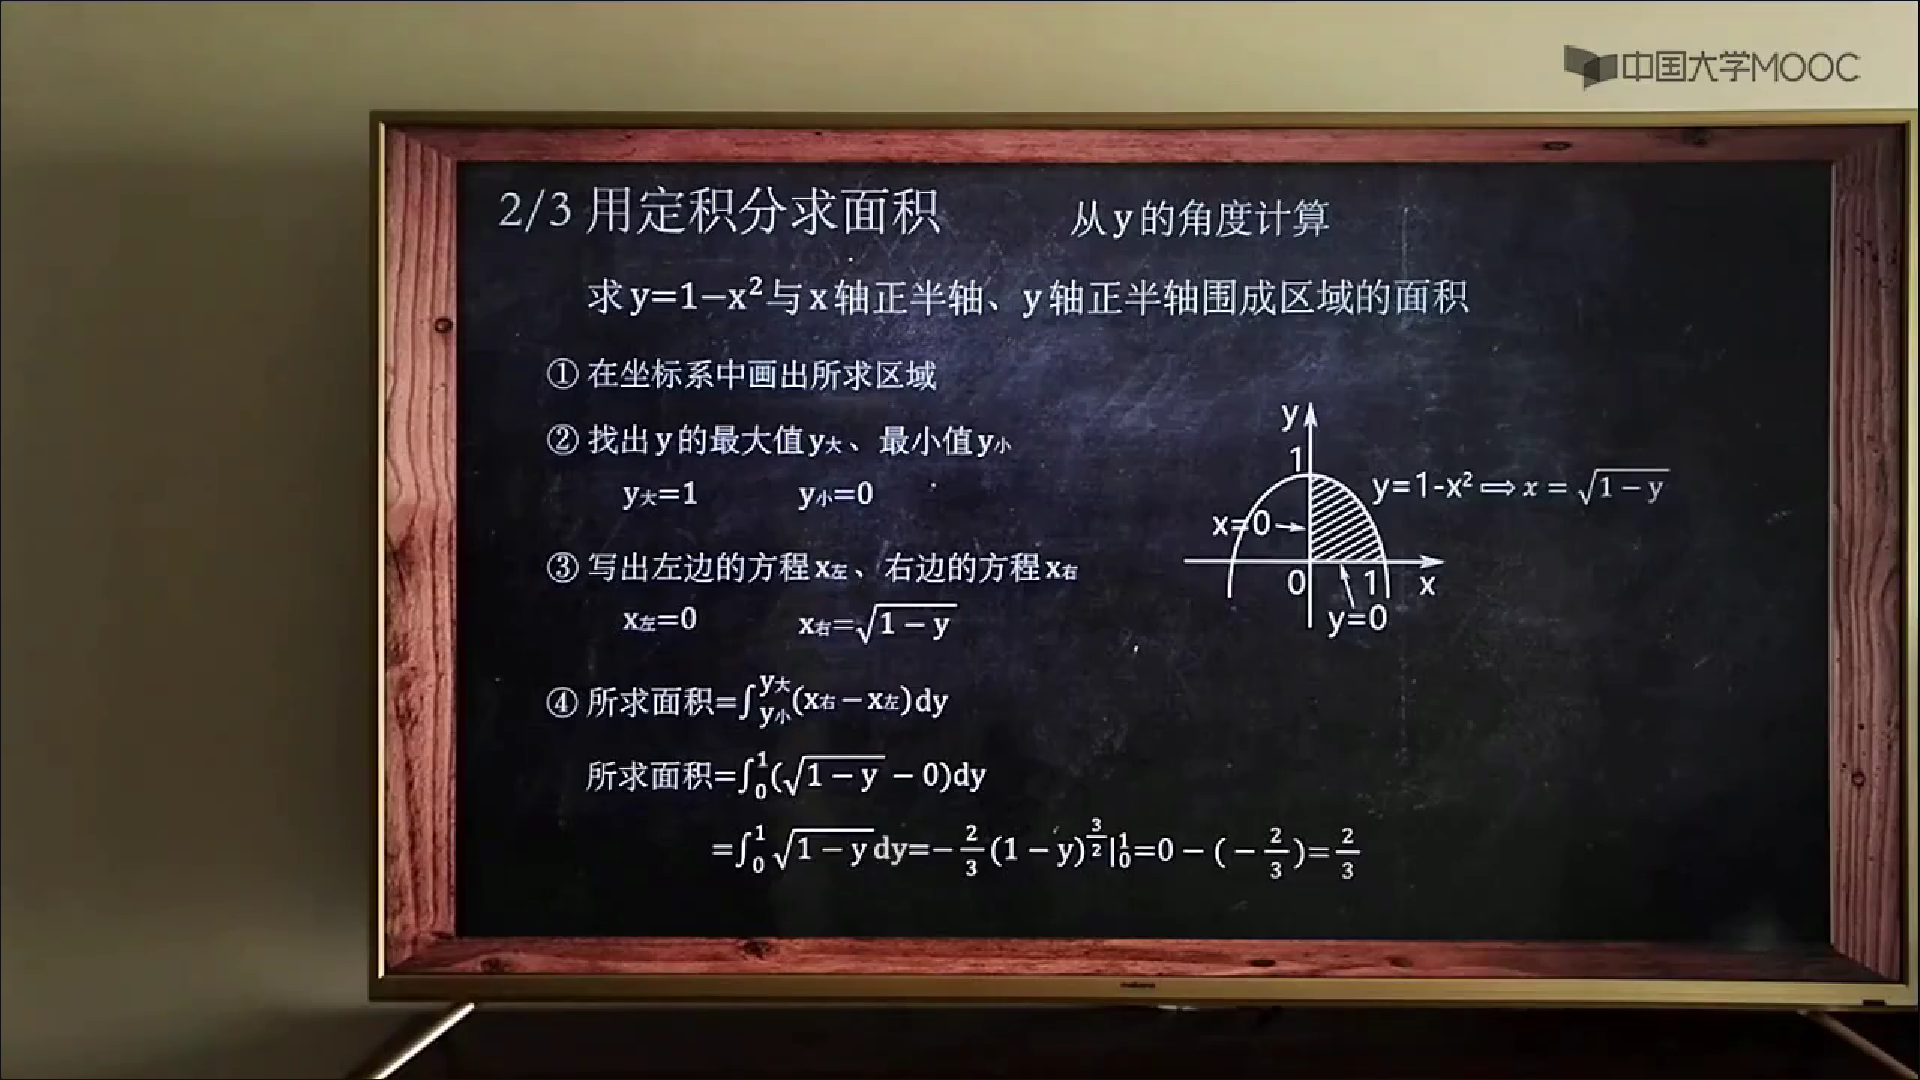 中国大学MOOC
2/3 用定积分求面积 从y的角度计算
求y=1−x²与x轴正半轴、y轴正半轴围成区域的面积
① 在坐标系中画出所求区域
② 找出y的最大值y大、最小值y小
y大=1 y小=0
③ 写出左边的方程x左、右边的方程x右
x左=0 x右=√(1−y)
④ 所求面积=∫_{y小}^{y大}(x右−x左)dy
所求面积=∫_0^1(√(1−y)−0)dy
=∫_0^1√(1−y)dy=−2/3(1−y)^{3/2}|_0^1=0−(−2/3)=2/3
y
1
y=1-x²⟹x=√(1−y)
x=0
0 1 x
y=0